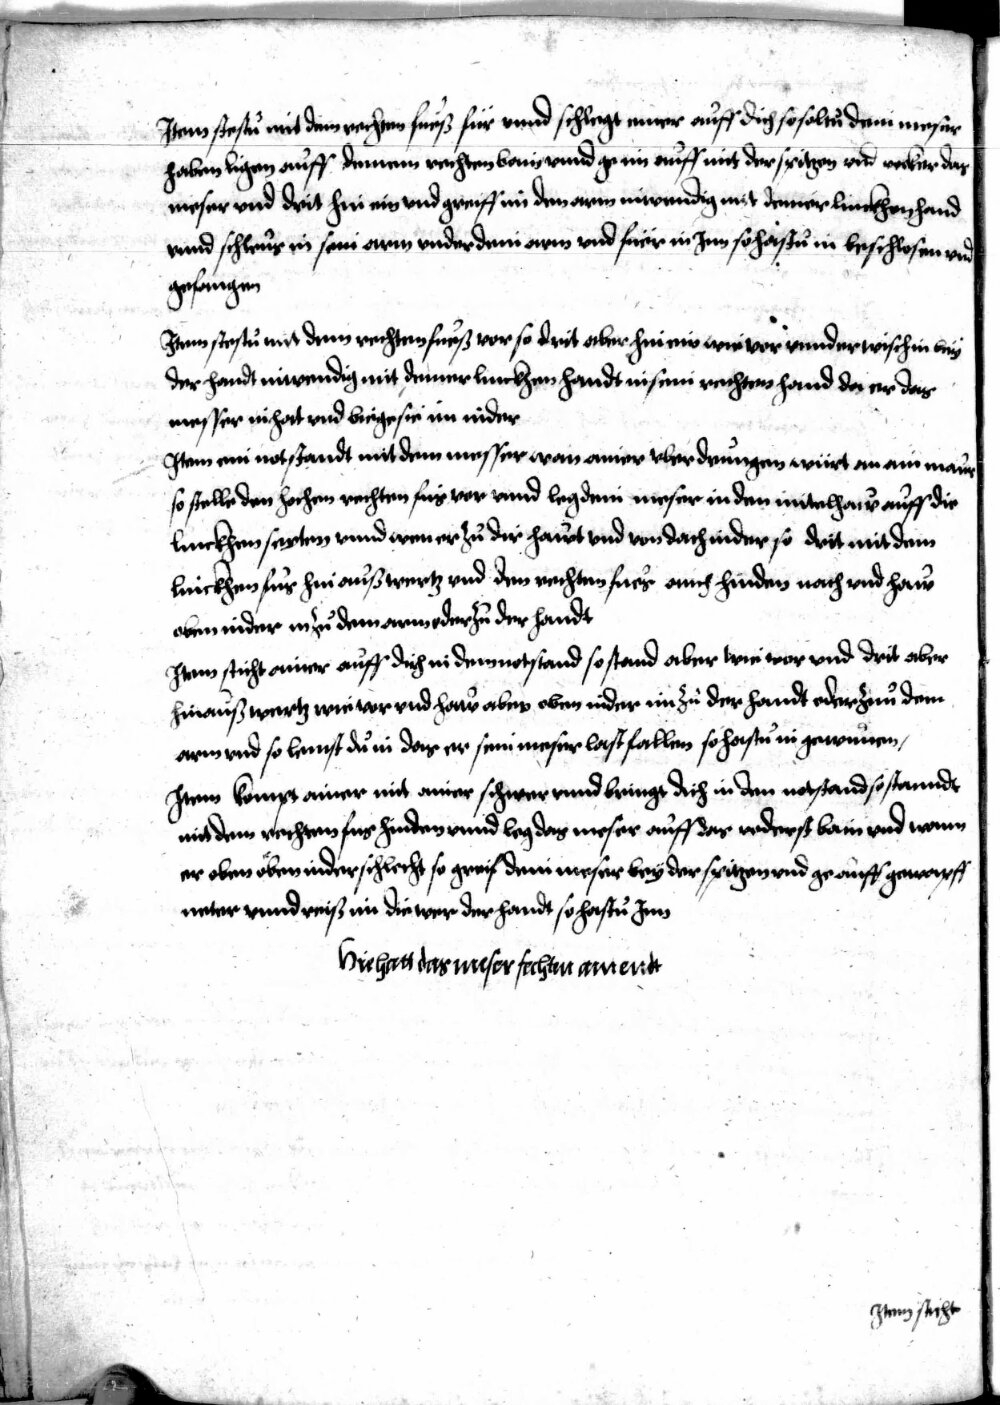 Item stestu mit dem rechten fueß für vnnd schlegt einer auff dich so soltu dein meser
haben ligen auff deinem rechten bain vnnd ge im auff mit der spitzen vnd wecker das
meser vnd drit hin ein vnd greiff im den arm inwendig mit deiner linckhen hand
vnnd schleus in sein arm vnder dein arm vnd fuer in Inn so hastu in beschlosen vnd
gefangen
Item stestu mit dem rechten fueß vor so drit aber hin ein wie vor vnnd erwisch in bey
der handt inwendig mit deiner linckhen handt in sein rechten hand da er das
messer in hat vnd biege sie im nider
Item ein notstandt mit dem messer wan ainer vber drungen würt an ain maur
so stelle den hochen rechten fus vor vnnd leg dein meser in den mitelhaw auff die
linckhen seyten vnnd wen er zu dir hawt vnd von dach nider so drit mit dem
linckhen fus hin außwertz vnd den rechten fues auch hinden nach vnd haw
oben nider im zu dem arm oder zu der handt
Item sticht ainer auff dich in dem notstand so stand aber wie vor vnd drit aber
hinaußwertz wie vor vnd haw aber oben nider im zu der handt oder zuu dem
arm vnd so lemst du in das er sein meser last fallen so hastu in gewunen /
Item kompt ainer mit ainer schwer vnnd bringt dich in den notstand so stanndt
mit dem rechten fus hinden vnnd leg das meser auff das voderst bain vnd wann
er oben oben nider schlecht so greif dein meser bey der spitzen vnd ge auff gewapff
neter vnnd reiß im die wer der handt so hastu Inn
Hie hatt das meser fechten am entt
Item sticht